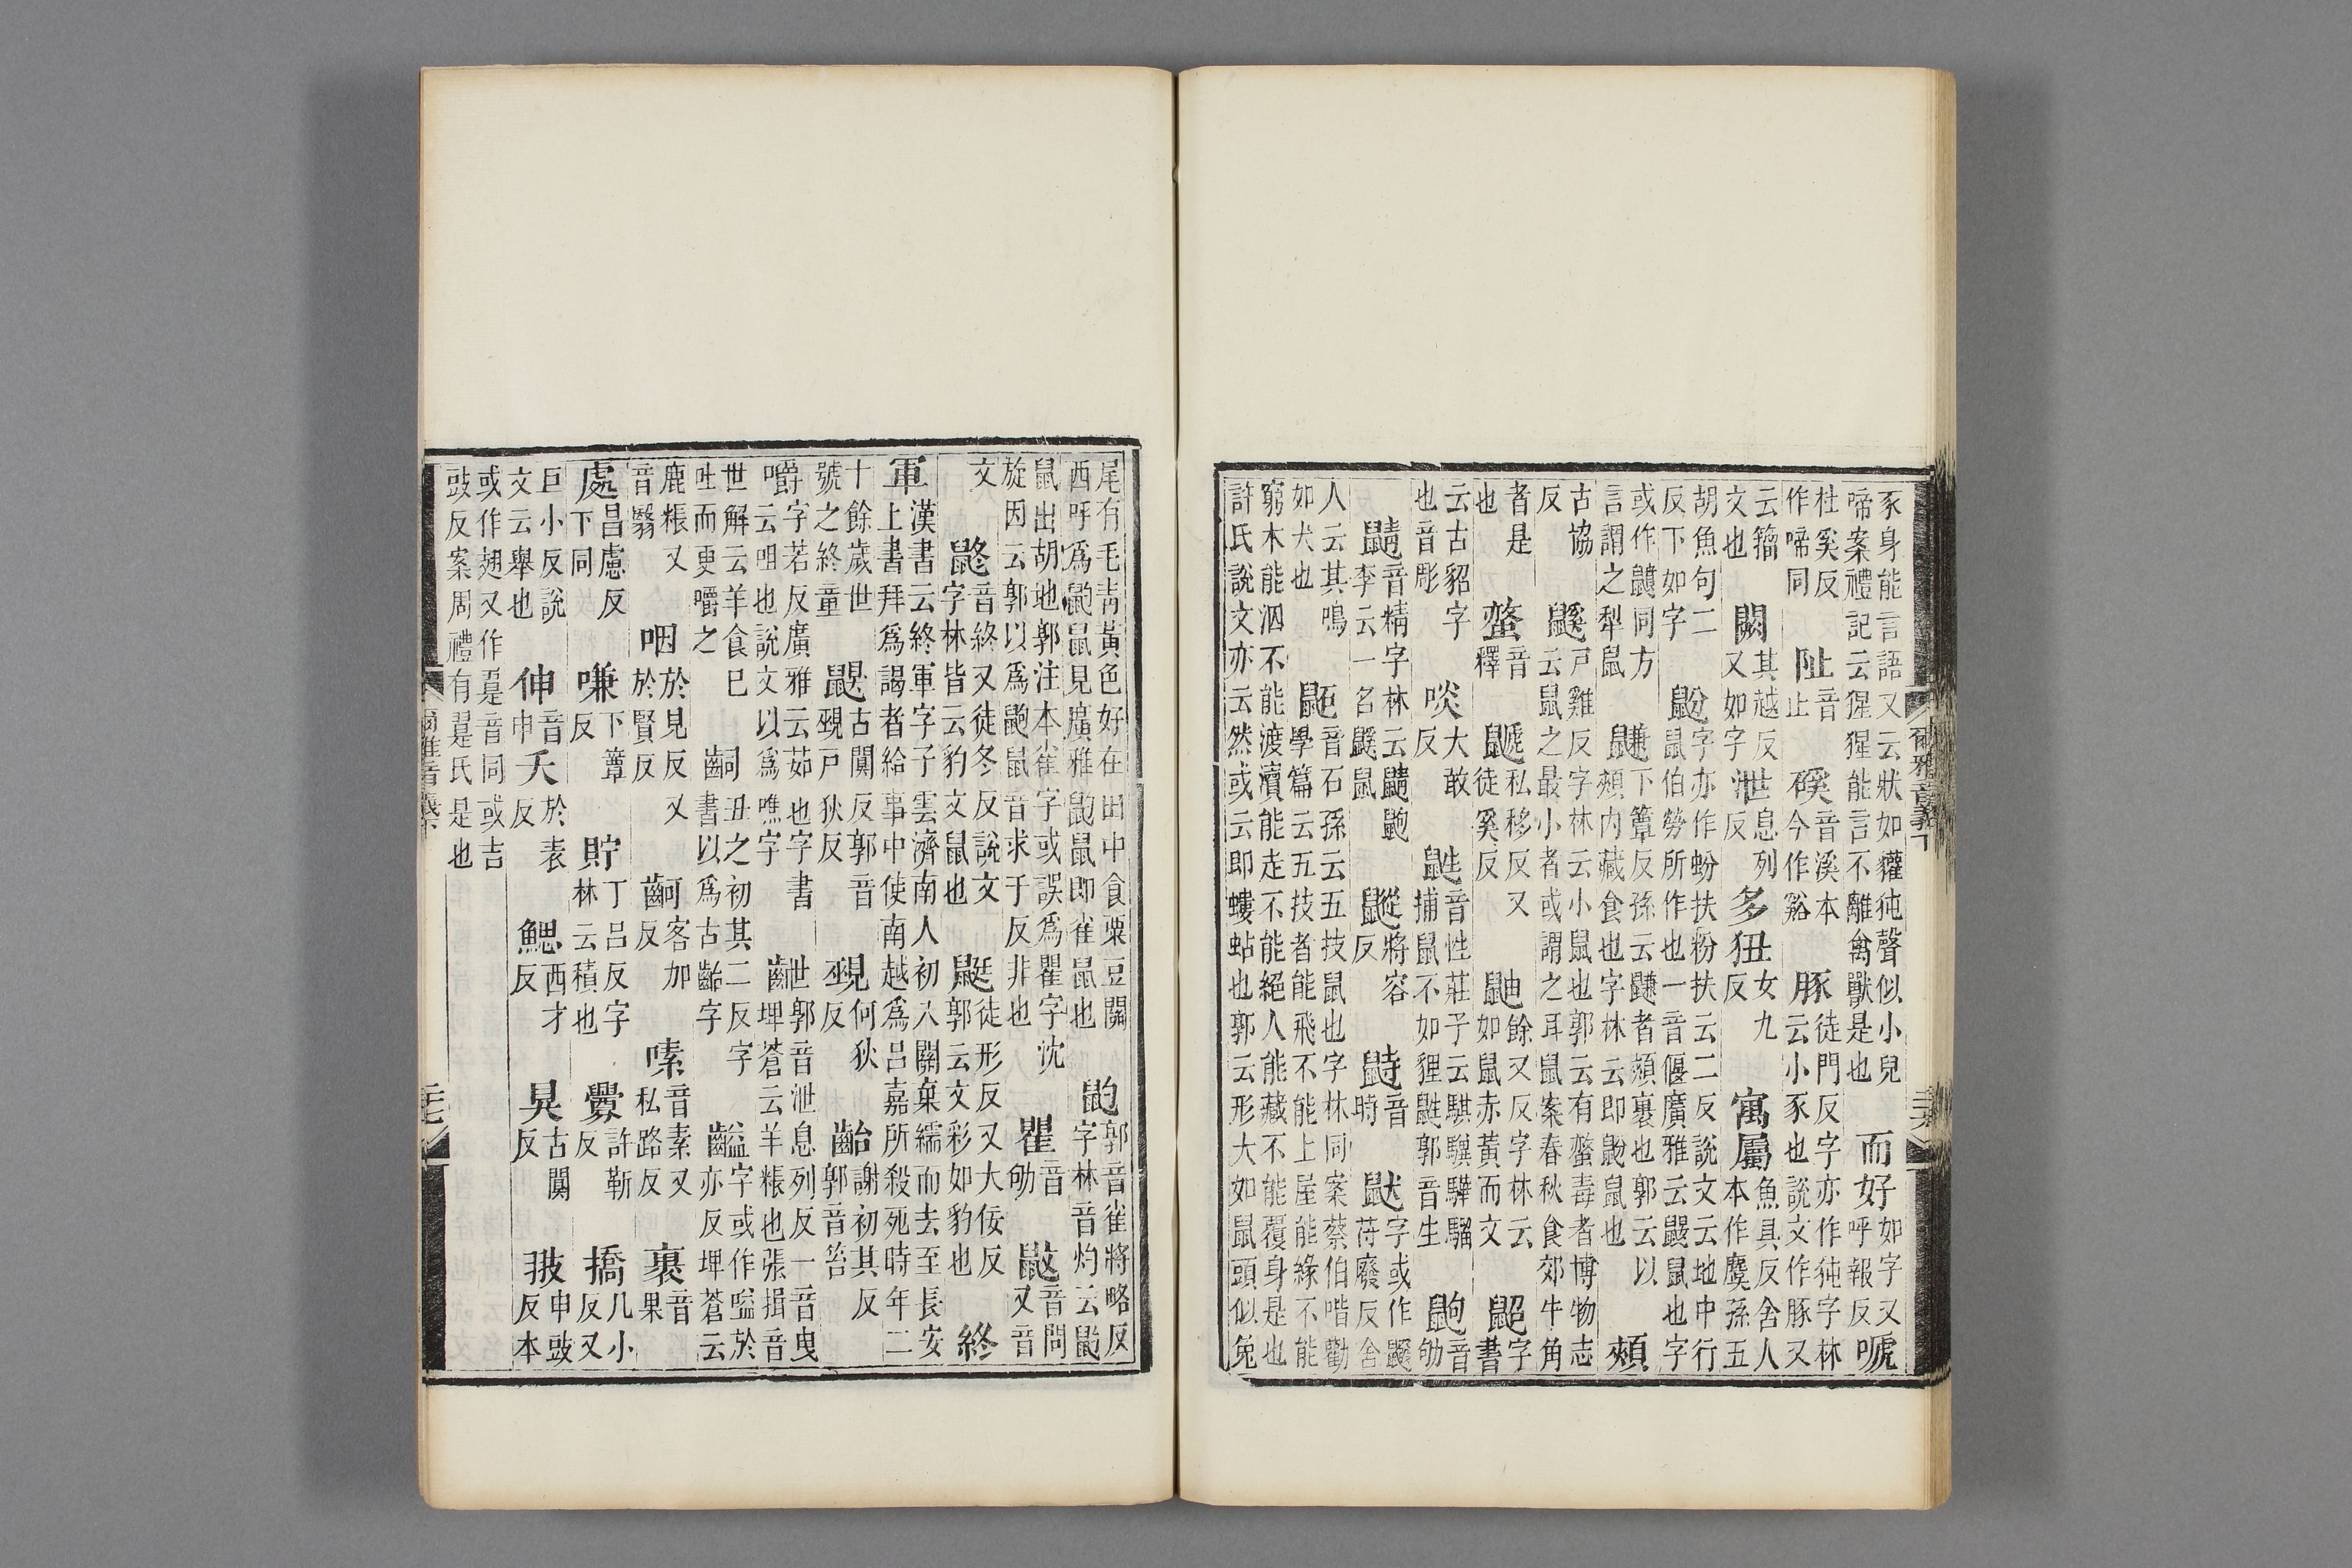 豕身能言語又云狀如貛㹠聲似小兒啼案禮記云猩猩能言不離禽獸是也 而好如字又呼報反 嗁
杜奚反作啼同 阯音止 磎音溪本今作谿 豚徒門反字亦作㹠字林云小豕也說文作豚又
云籀文也 闕其越反又如字 泄息列反 多狃女九反 寓屬魚具反舍人本作麌孫五
胡魚句二反下如字 鼢字亦作蚡扶粉扶云二反說文云地中行鼠伯勞所作也一音偃廣雅云鼹鼠也字
或作同方言謂之犁鼠 鼸下簟反孫云鼸者頰裏也郭云以頰內藏食也字林云即鼢鼠也 頰
古協反 鼷戶雞反字林云小鼠也郭云有螫毒者博物志云鼠之最小者或謂之耳鼠案春秋食郊牛角
者是也 螫音釋 鼶私移反又徒奚反 鼬餘又反字林云如鼠赤黃而文 鼦字書
云古貂字也音彫 啖大敢反 鼪音性莊子云騏驥驊騮捕鼠不如狸鼪郭音生 鼩音劬
鼱音精字林云鼱鼩李云一名鼷鼠 將容反 鼭音時 鼣字或作苻廢反舍
人云其鳴如犬也 鼫音石孫云五技鼠也字林同案蔡伯喈勸學篇云五技者能飛不能上屋能緣不能
窮木能泅不能渡瀆能走不能絕人能藏不能覆身是也許氏說文亦云然或云即螻蛄也郭云形大如鼠頭似兔
爾雅音義下
尾有毛靑黃色好在田中食粟豆關西呼爲鼩鼠見廣雅鼩鼠即雀鼠也 郭音雀將略反字林音灼云
鼠出胡地郭注本雀字或誤爲瞿字沈旋因云郭以爲鼩鼠音求于反非也 瞿音劬 鼤音問又音
文 鼨音終又徒冬反說文字林皆云豹文鼠也 鼮徒形反又大佞反郭云文彩如豹也 終
軍漢書云終軍字子雲濟南人初入關棄繻而去至長安上書拜爲謁者給事中使南越爲呂嘉所殺死時年二
十餘歲世號之終童 鼳古闃反郭音覡戶狄反 覡何狄反 齝謝初其反郭音笞
嚼字若反廣雅云茹也字書云咀也說文以爲噍字 齛世郭音泄息列反一音曳埤蒼云羊粻也張揖音
世解云羊食已吐而更嚼之 丑之初其二反字書以爲古齝字 齸字或作嗌於亦反埤蒼云
鹿粻又音翳 咽於見反又於賢反 客加反 嗉音素又私路反 裹音果
處昌慮反下同 嗛下簟反 貯丁呂反字林云積也 釁許靳反 撟几小反又
巨小反說文云舉也 伸音申 夭於表反 鰓西才反 狊古闃反 翍申豉反本
或作翅又作翨音同或吉豉反案周禮有翨氏是也
爾雅音義下